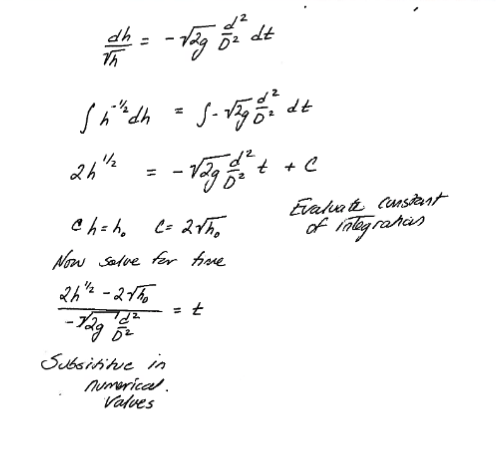 dh/√h = - √2g d²/D² dt
∫ h^-1/2 dh = ∫ - √2g d²/D² dt
2h^1/2 = - √2g d²/D² t + C
@ h = h₀ C = 2√h₀ Evaluate constant
of integration
Now solve for time
(2h^1/2 - 2√h₀)/(-√2g d²/D²) = t
Substitute in
numerical
values